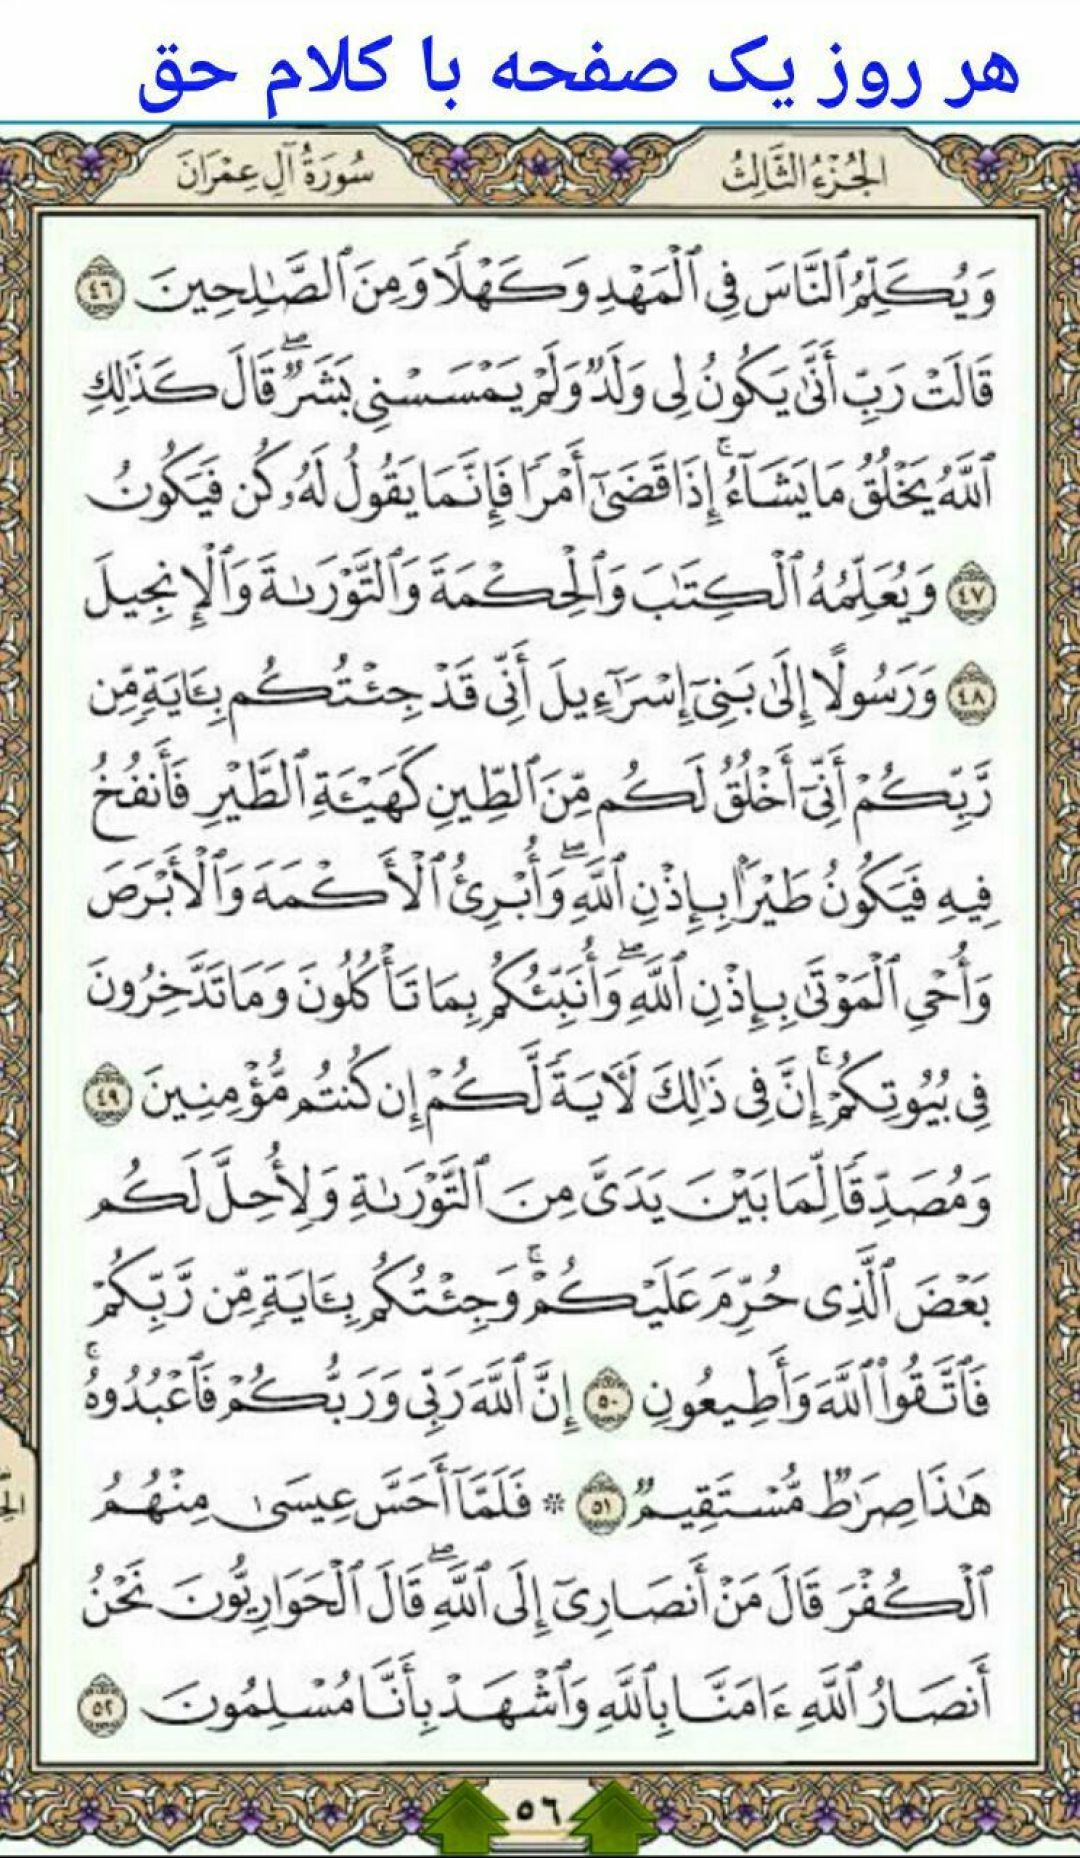 هر روز یک صفحه با کلام حق
الجُزْءُ الثَّالِثُ
سُورَةُ آلِ عِمْرَانَ
وَيُكَلِّمُ ٱلنَّاسَ فِى ٱلْمَهْدِ وَكَهْلًا وَمِنَ ٱلصَّٰلِحِينَ ٤٦
قَالَتْ رَبِّ أَنَّىٰ يَكُونُ لِى وَلَدٌ وَلَمْ يَمْسَسْنِى بَشَرٌ ۖ قَالَ كَذَٰلِكِ
ٱللَّهُ يَخْلُقُ مَا يَشَآءُ ۚ إِذَا قَضَىٰٓ أَمْرًا فَإِنَّمَا يَقُولُ لَهُۥ كُن فَيَكُونُ
٤٧ وَيُعَلِّمُهُ ٱلْكِتَٰبَ وَٱلْحِكْمَةَ وَٱلتَّوْرَىٰةَ وَٱلْإِنجِيلَ
٤٨ وَرَسُولًا إِلَىٰ بَنِىٓ إِسْرَٰٓءِيلَ أَنِّى قَدْ جِئْتُكُم بِـَٔايَةٍ مِّن
رَّبِّكُمْ ۖ أَنِّىٓ أَخْلُقُ لَكُم مِّنَ ٱلطِّينِ كَهَيْـَٔةِ ٱلطَّيْرِ فَأَنفُخُ
فِيهِ فَيَكُونُ طَيْرًۢا بِإِذْنِ ٱللَّهِ ۖ وَأُبْرِئُ ٱلْأَكْمَهَ وَٱلْأَبْرَصَ
وَأُحْىِ ٱلْمَوْتَىٰ بِإِذْنِ ٱللَّهِ ۖ وَأُنَبِّئُكُم بِمَا تَأْكُلُونَ وَمَا تَدَّخِرُونَ
فِى بُيُوتِكُمْ ۚ إِنَّ فِى ذَٰلِكَ لَـَٔايَةً لَّكُمْ إِن كُنتُم مُّؤْمِنِينَ ٤٩
وَمُصَدِّقًا لِّمَا بَيْنَ يَدَىَّ مِنَ ٱلتَّوْرَىٰةِ وَلِأُحِلَّ لَكُم
بَعْضَ ٱلَّذِى حُرِّمَ عَلَيْكُمْ ۚ وَجِئْتُكُم بِـَٔايَةٍ مِّن رَّبِّكُمْ
فَٱتَّقُوا۟ ٱللَّهَ وَأَطِيعُونِ ٥٠ إِنَّ ٱللَّهَ رَبِّى وَرَبُّكُمْ فَٱعْبُدُوهُ ۚ
هَٰذَا صِرَٰطٌ مُّسْتَقِيمٌ ٥١ ۞ فَلَمَّآ أَحَسَّ عِيسَىٰ مِنْهُمُ
ٱلْكُفْرَ قَالَ مَنْ أَنصَارِىٓ إِلَى ٱللَّهِ ۖ قَالَ ٱلْحَوَارِيُّونَ نَحْنُ
أَنصَارُ ٱللَّهِ ءَامَنَّا بِٱللَّهِ وَٱشْهَدْ بِأَنَّا مُسْلِمُونَ ٥٢
٥٦